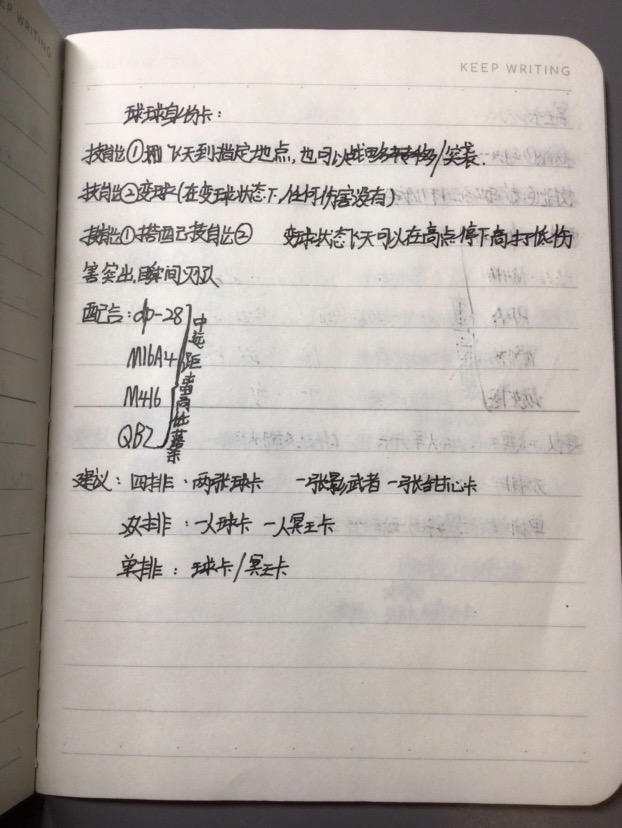 KEEP WRITING
球球身份卡:
技能①翻飞天到指定地点,也可以战略转移/突袭.
技能②变球(在变球状态下,任何伤害没有)
技能①搭配技能② 变球状态飞天可以在高点停下高打低伤
害突出,瞬间灭队
配合:dp-28
M16A4
M416
QBZ
中远距离高低落茶
建议:四排:两张球卡 一张影武者 一张甜心卡
双排:一人球卡 一人冥王卡
单排:球卡/冥王卡